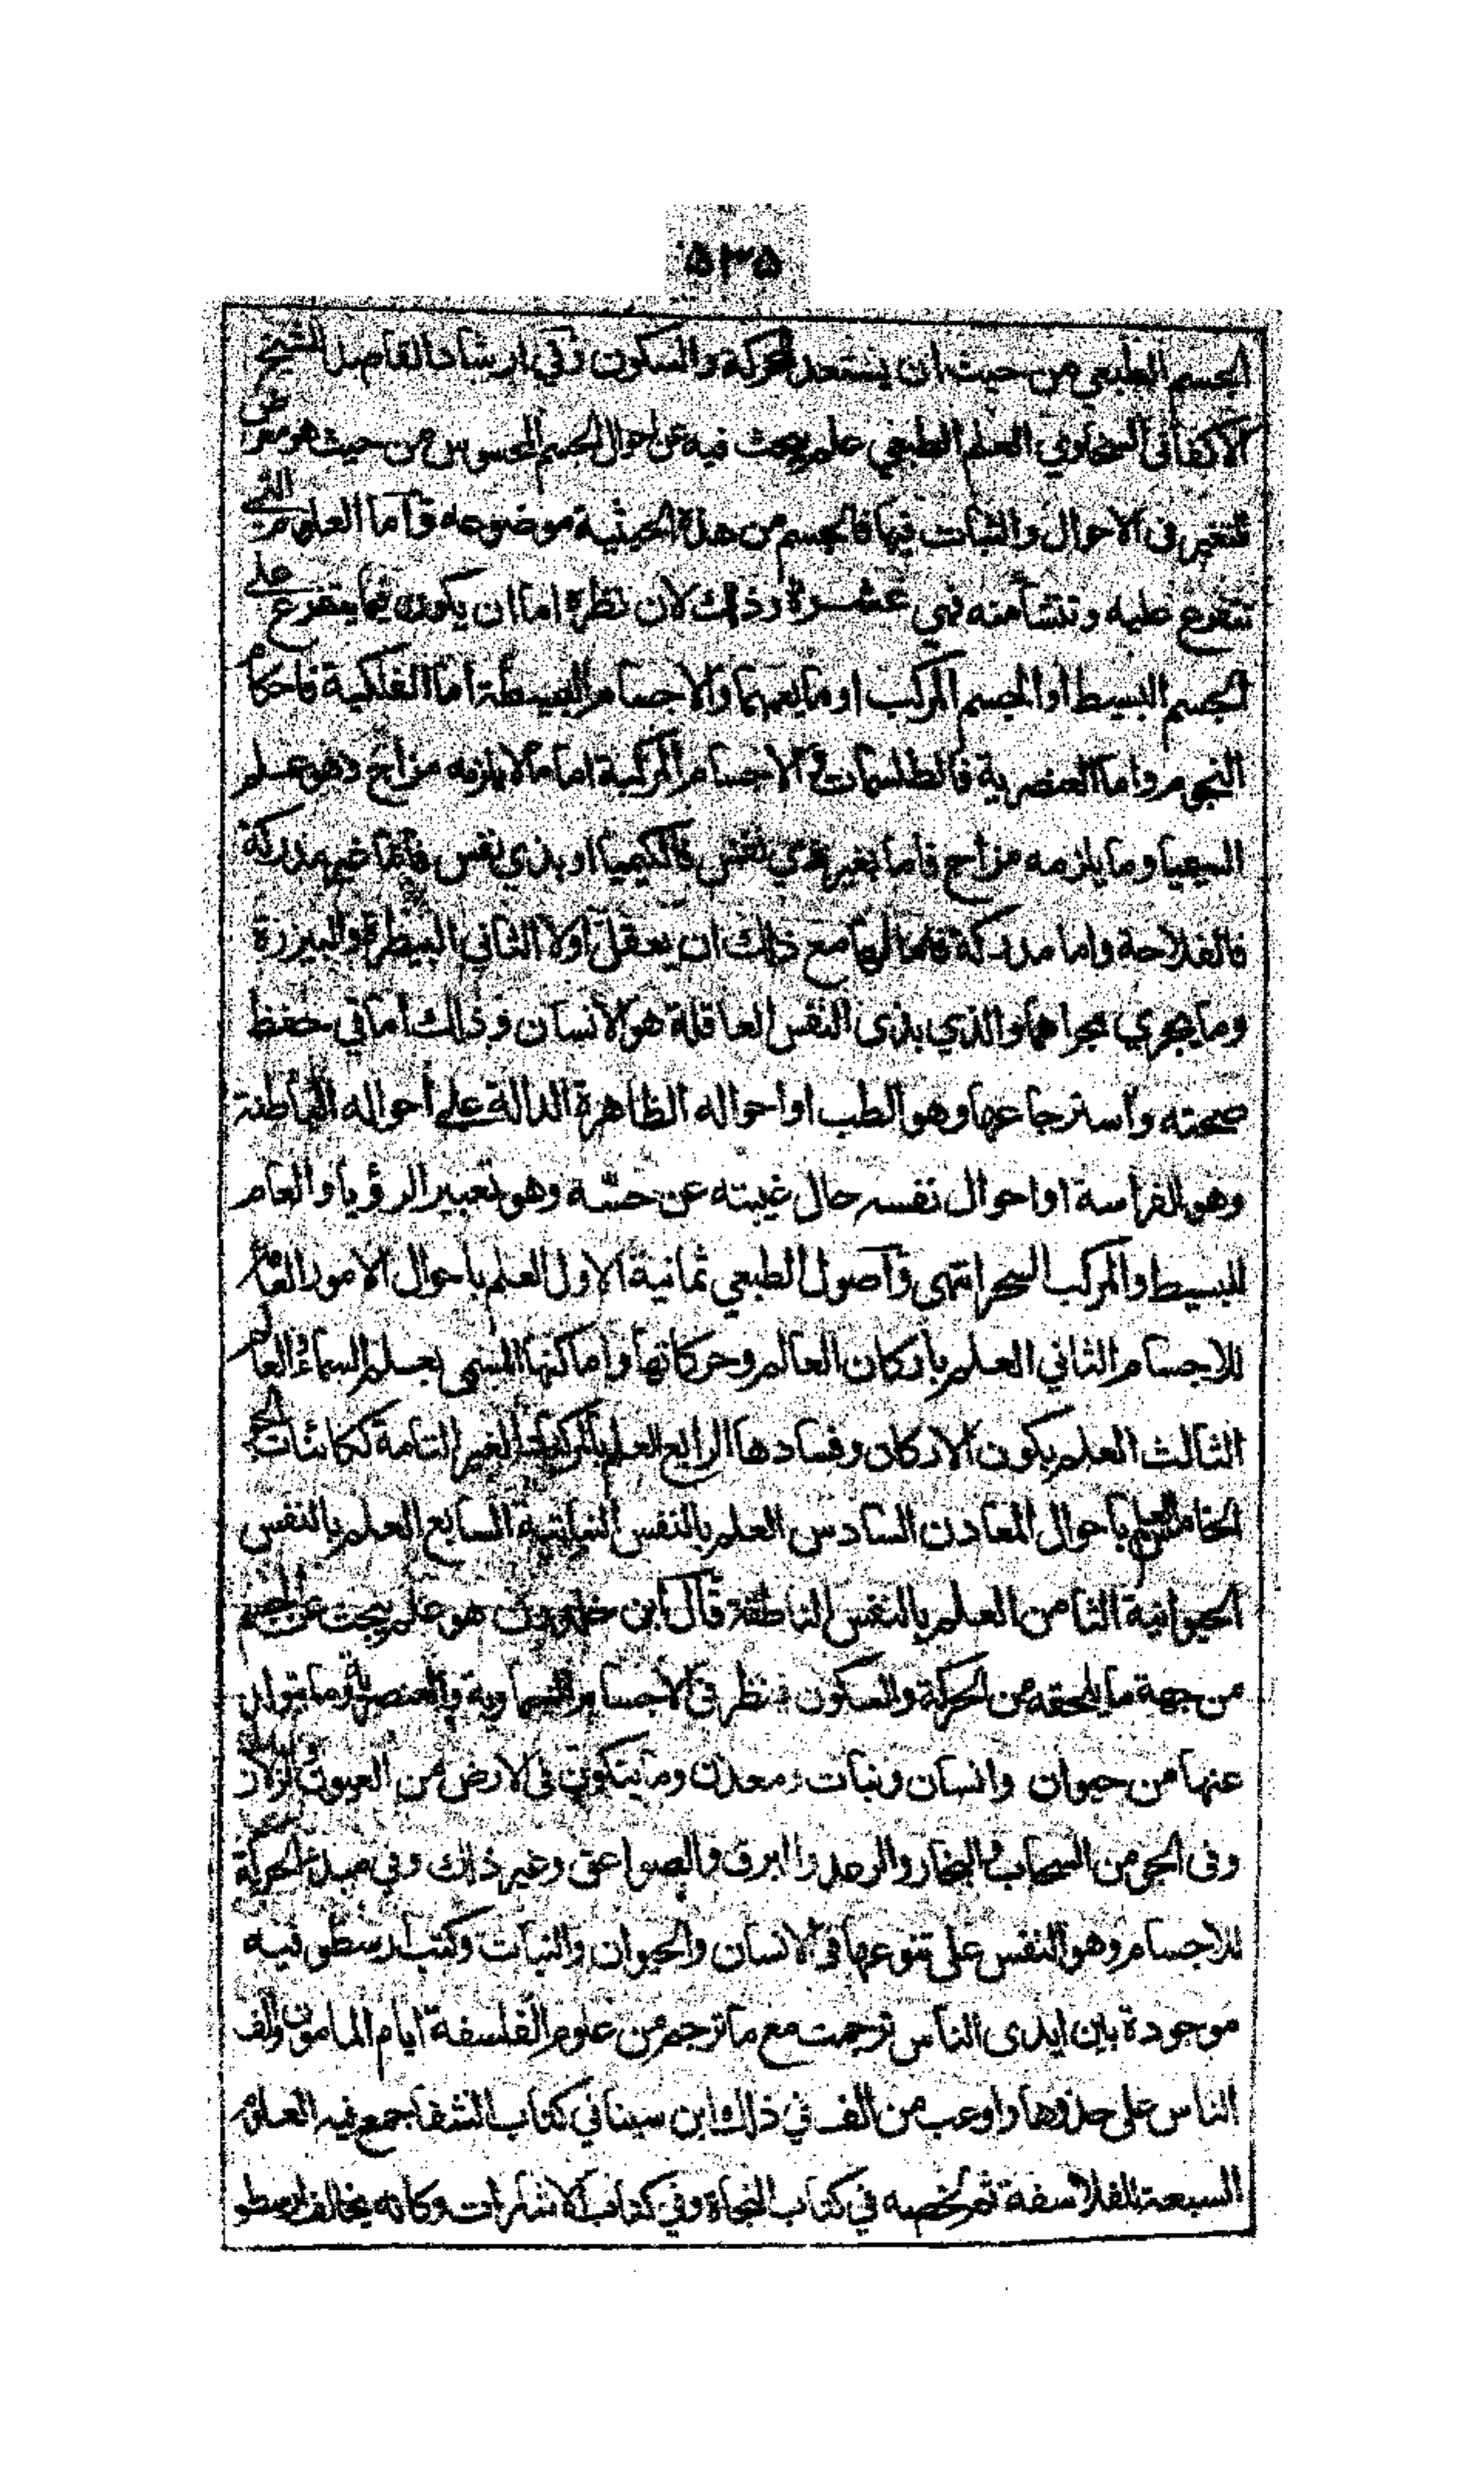 ۵۳۵
الجسم الطبيعي من حيث ان يستعد للحركة والسكون وفي ارشاد القاصد للشيخ
الاكفاني السخاوي العلم الطبعي علم يبحث فيه عن احوال الجسم المحسوس من حيث هو معرض
للتغير فى الاحوال والثبات فيها فالجسم من هذه الحيثية موضوعه وآما العلوم التي
تتفرع عليه وتنشأ منه فهي عشرة وذلك لان نظره اما ان يكون فيما يتفرع على
الجسم البسيط او الجسم المركب او ما يعمهما والاجسام البسيطة اما الفلكية فاحكام
النجوم واما العنصرية فالطلسمات والاجسام المركبة اما ما لا يلزمه مزاج وهو علم
السيميا وما يلزمه مزاج فاما بغير ذي نفس فالكيميا او بذي نفس فاما غير مدركة
فالفلاحة واما مدركة فاما لها مع ذلك ان يعقل اولا الثاني البيطرة والبيزرة
وما يجري مجراهما والذي بذى النفس العاقلة هو الانسان وذلك اما في حفظ
صحته واسترجاعها وهو الطب او احواله الظاهرة الدالة على احواله الباطنة
وهو الفراسة او احوال نفسه حال غيبته عن حسّه وهو تعبير الرؤيا والعام
للبسيط والمركب السحر انتهى وآصول الطبعي ثمانية الاول العلم باحوال الامور العامة
للاجسام الثاني العلم باركان العالم وحركاتها واماكنها المسمى بعلم السماء والعالم
الثالث العلم بكون الاركان وفسادها الرابع العلم بالمركبات الغير التامة ككائنات الجو
الخامس العلم باحوال المعادن السادس العلم بالنفس النباتية السابع العلم بالنفس
الحيوانية الثامن العلم بالنفس الناطقة قال ابن خلدون هو علم يبحث عن الجسم
من جهة ما يلحقه من الحركة والسكون فينظر فى الاجسام السماوية والعنصرية وما يتولد
عنها من حيوان وانسان ونبات ومعدن وما يتكون فى الارض من العيون والزلازل
وفى الجو من السحاب والبخار والرعد والبرق والصواعق وغير ذلك وفي مبدء الحركة
للاجسام وهو النفس على تنوعها فى الانسان والحيوان والنبات وكتب ارسطو فيه
موجودة بين ايدى الناس ترجمت مع ما ترجم من علوم الفلسفة ايام المامون والف
الناس على حذوها واوعب من الف في ذلك ابن سينا في كتاب الشفا جمع فيه العلوم
السبعة للفلاسفة ثم لخصه في كتاب النجاة وفي كتاب الاشارات وكانه يخالف ارسطو